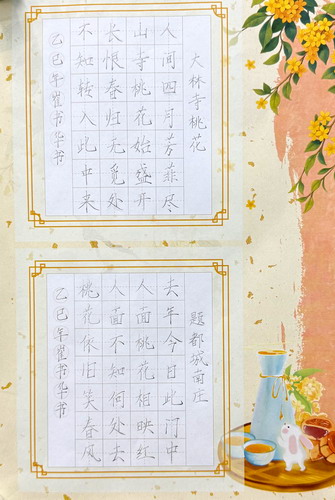 大林寺桃花
人间四月芳菲尽
山寺桃花始盛开
长恨春归无觅处
不知转入此中来
乙巳年崔书华书
题都城南庄
去年今日此门中
人面桃花相映红
人面不知何处去
桃花依旧笑春风
乙巳年崔书华书